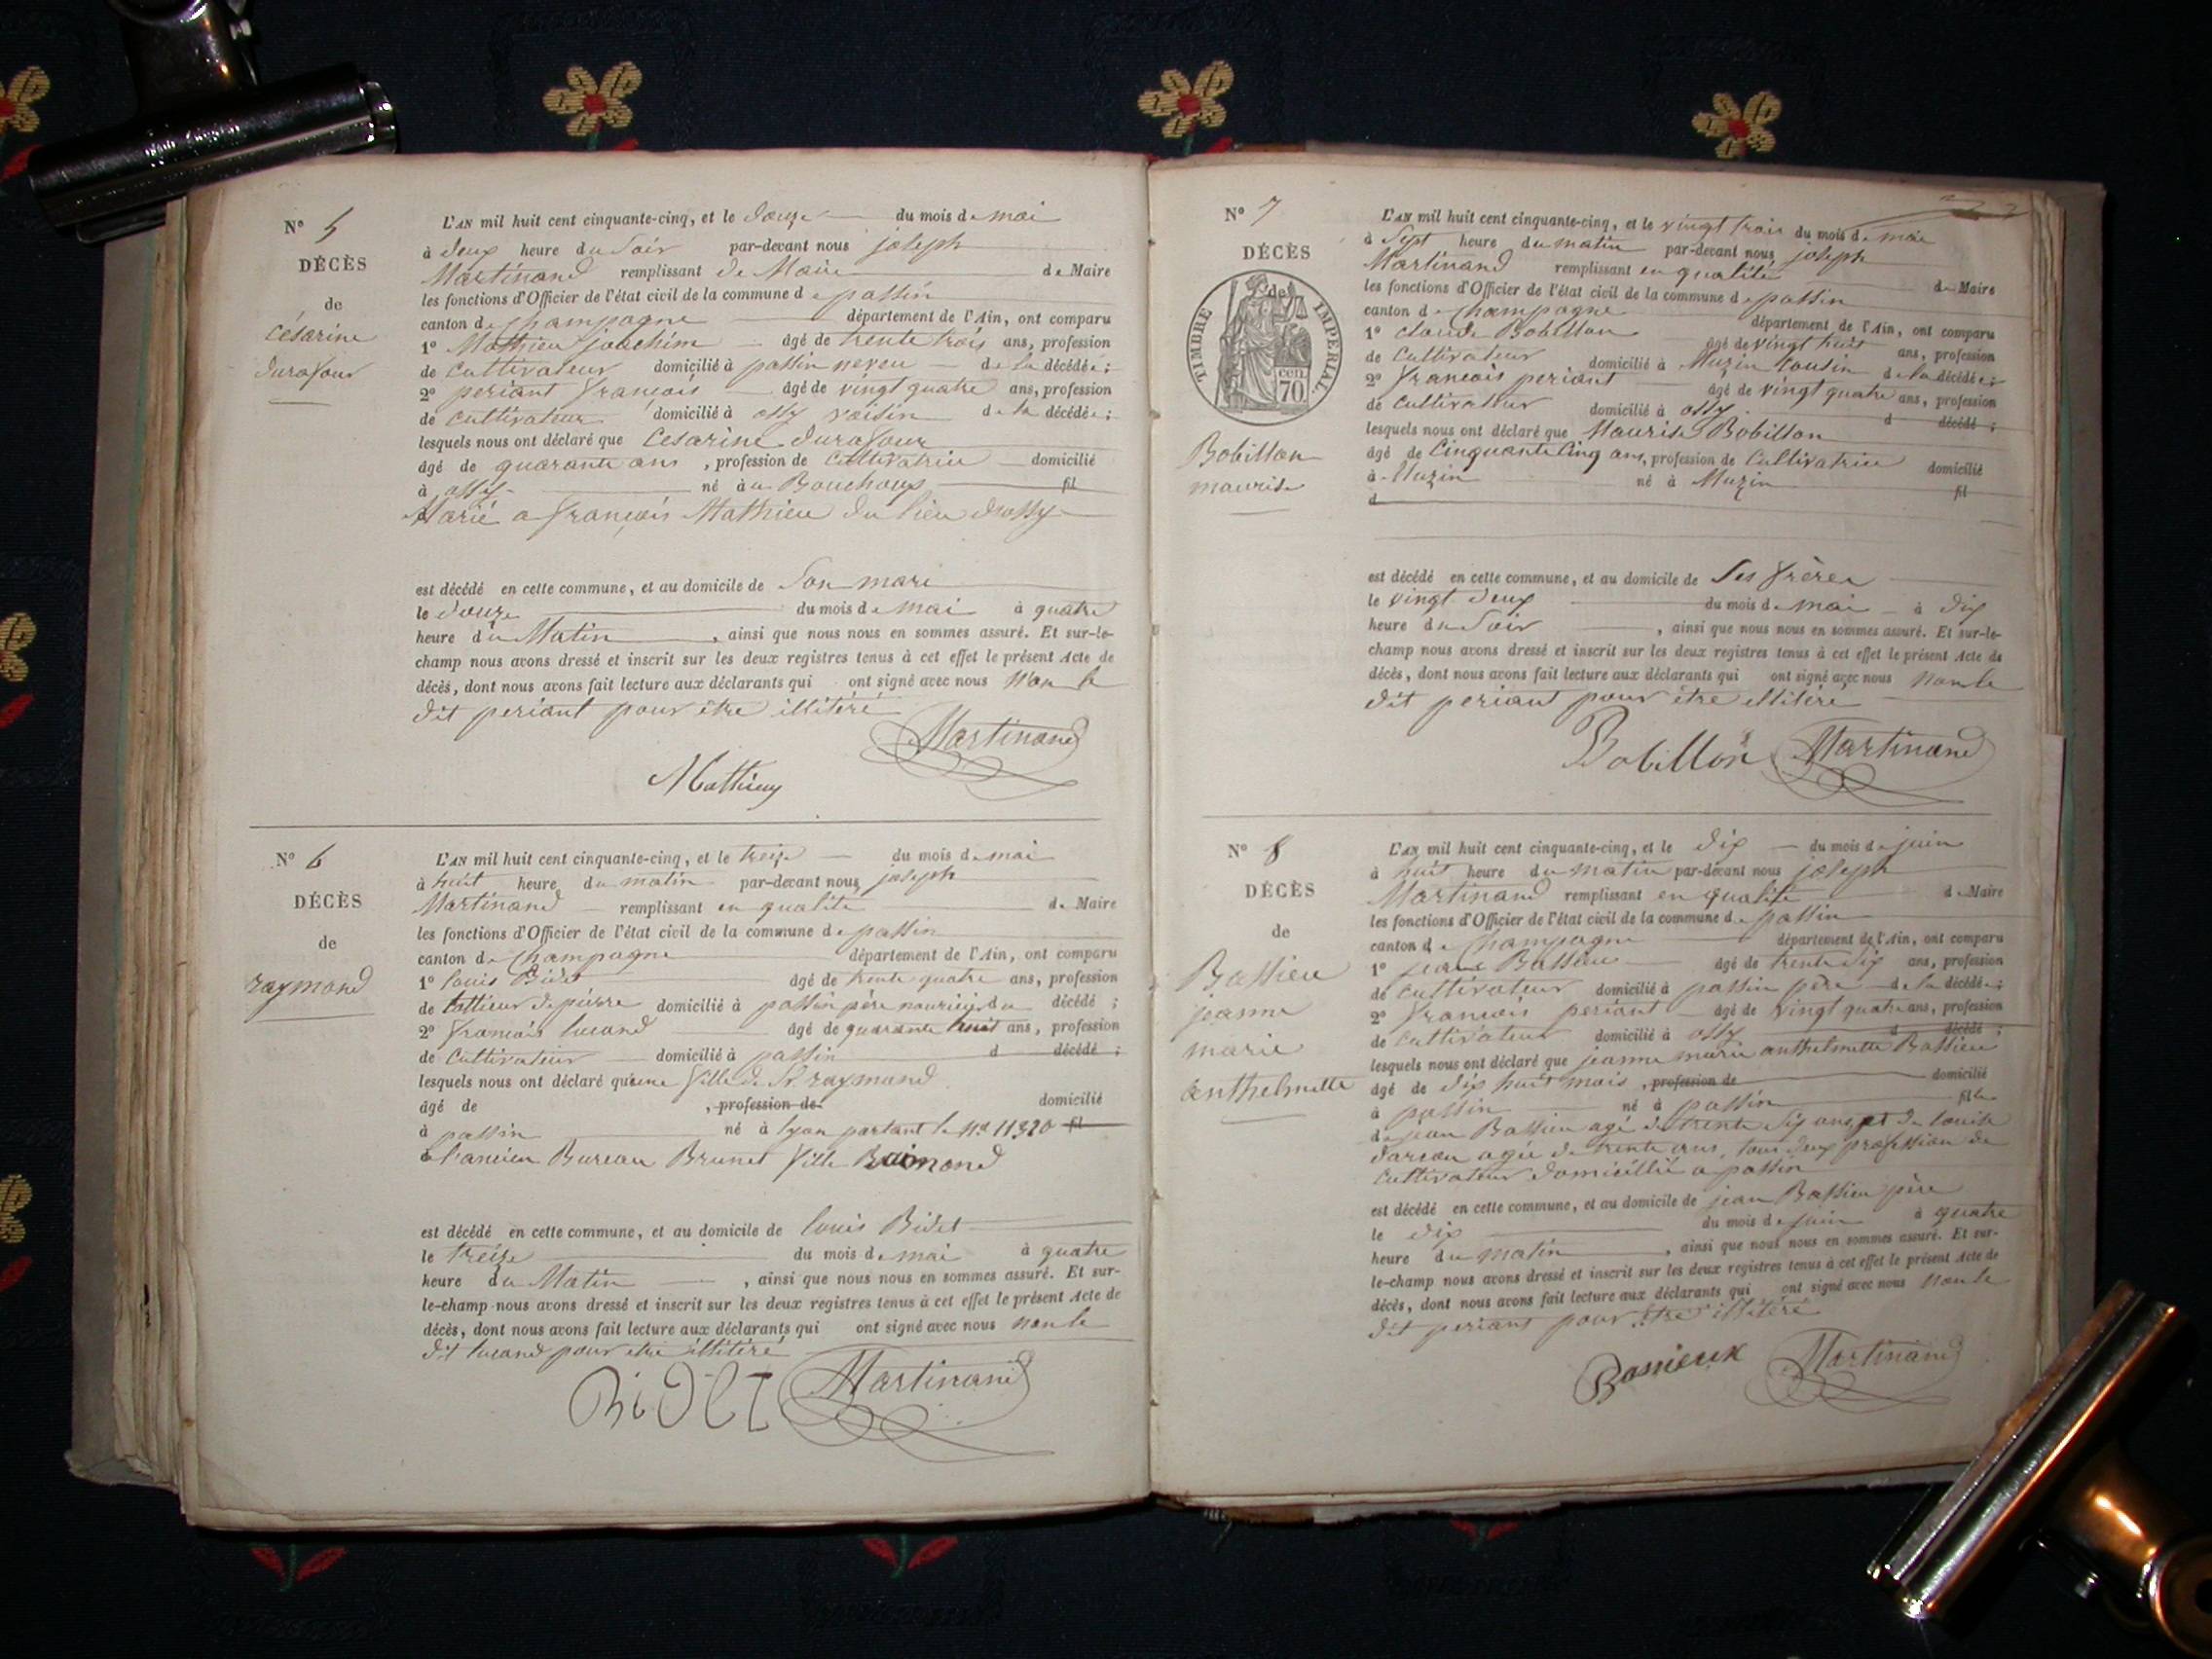 N° 5
DÉCÈS
de
Césarine
durafour
L'AN mil huit cent cinquante-cinq, et le douze du mois de mai
à deux heure du Soir par-devant nous joseph
Martinand remplissant de Maire de Maire
les fonctions d'Officier de l'état civil de la commune de passin
canton de Champagne département de l'Ain, ont comparu
1° Mathieu joachim âgé de trente trois ans, profession
de Cultivateur domicilié à passin neveu de la décédée;
2° periant françois âgé de vingt quatre ans, profession
de Cultivateur domicilié à ossy voisin de la décédée;
lesquels nous ont déclaré que Césarine durafour
âgé de quarante ans, profession de Cultivatrice domicilié
à ossy né à au Bouchoux fil
d Marié a françois Mathieu du lieu dossy
est décédé en cette commune, et au domicile de Son mari
le douze du mois de mai à quatre
heure du Matin, ainsi que nous nous en sommes assuré. Et sur-le-
champ nous avons dressé et inscrit sur les deux registres tenus à cet effet le présent Acte de
décès, dont nous avons fait lecture aux déclarants qui ont signé avec nous Non le
dit periant pour être illitéré
Martinand
Mathieu
N° 6
DÉCÈS
de
raymond
L'AN mil huit cent cinquante-cinq, et le treize du mois de mai
à huit heure du matin par-devant nous joseph
Martinand remplissant en qualité de Maire
les fonctions d'Officier de l'état civil de la commune de passin
canton de Champagne département de l'Ain, ont comparu
1° louis Bidet âgé de trente quatre ans, profession
de tallieur de pierre domicilié à passin père nouricis du décédé;
2° françois lucand âgé de quarante huit ans, profession
de Cultivateur domicilié à passin d décédé;
lesquels nous ont déclaré qu'une fille de St raymond
âgé de , profession de domicilié
à passin né à lyon portant le no 11320 fil
d l'ancien Bureau Brunet fille Raimond
est décédé en cette commune, et au domicile de louis Bidet
le treize du mois de mai à quatre
heure du Matin, ainsi que nous nous en sommes assuré. Et sur-
le-champ nous avons dressé et inscrit sur les deux registres tenus à cet effet le présent Acte de
décès, dont nous avons fait lecture aux déclarants qui ont signé avec nous non le
dit lucand pour etre illitéré
Bidet Martinand
N° 7
DÉCÈS
de
TIMBRE IMPÉRIAL
cen.
70
Bobillon
maurise
L'AN mil huit cent cinquante-cinq, et le vingt trois du mois de mai
à Sept heure du matin par-devant nous joseph
Martinand remplissant en qualité de Maire
les fonctions d'Officier de l'état civil de la commune de passin
canton de Champagne département de l'Ain, ont comparu
1° claude Bobillon âgé de vingt huit ans, profession
de Cultivateur domicilié à Muzin Cousin de la décédée;
2° françois periant âgé de vingt quatre ans, profession
de Cultivateur domicilié à ossy d décédé;
lesquels nous ont déclaré que Maurise Bobillon
âgé de Cinquante Cinq ans, profession de Cultivatrice domicilié
à Muzin né à Muzin fil
d
est décédé en cette commune, et au domicile de Ses frères
le vingt deux du mois de mai à dix
heure du Soir, ainsi que nous nous en sommes assuré. Et sur-le-
champ nous avons dressé et inscrit sur les deux registres tenus à cet effet le présent Acte de
décès, dont nous avons fait lecture aux déclarants qui ont signé avec nous non le
dit periant pour être illitéré
Bobillon Martinand
N° 8
DÉCÈS
de
Bassieu
jeanne
marie
anthelmette
L'AN mil huit cent cinquante-cinq, et le dix du mois de juin
à huit heure du matin par-devant nous joseph
Martinand remplissant en qualité de Maire
les fonctions d'Officier de l'état civil de la commune de passin
canton de Champagne département de l'Ain, ont comparu
1° jean Bassieu âgé de trente dix ans, profession
de cultivateur domicilié à passin père de la décédée;
2° françois periant âgé de vingt quatre ans, profession
de Cultivateur domicilié à ossy d décédé;
lesquels nous ont déclaré que jeanne marie anthelmette Bassieu
âgé de dix huit mois, profession de domicilié
à passin né à passin fille
de jean Bassieu agé de trente dix ans et de louise
dareau agée de trente ans, tous deux profession de
Cultivateur domicillié a passin
est décédé en cette commune, et au domicile de jean Bassieu père
le dix du mois de juin à quatre
heure du matin, ainsi que nous nous en sommes assuré. Et sur-
le-champ nous avons dressé et inscrit sur les deux registres tenus à cet effet le présent Acte de
décès, dont nous avons fait lecture aux déclarants qui ont signé avec nous non le
dit periant pour être illitéré
Bassieux Martinand